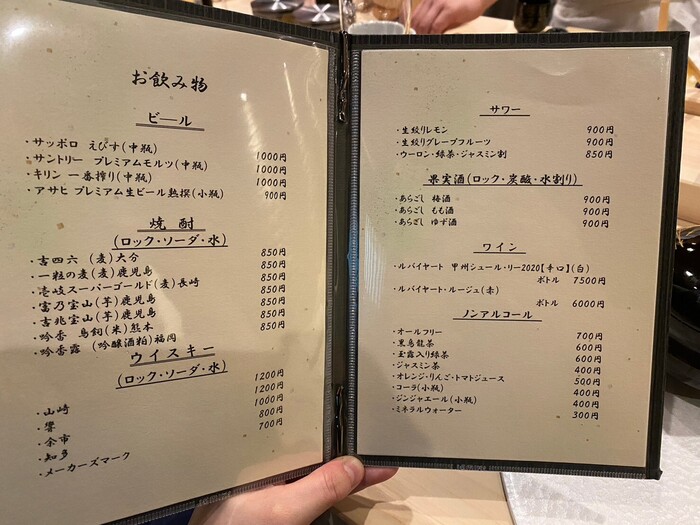 お飲み物
ビール
・サッポロ えびす(中瓶)
・サントリー プレミアムモルツ(中瓶) 1000円
・キリン 一番搾り(中瓶) 1000円
・アサヒ プレミアム生ビール熟撰(小瓶) 1000円
900円
焼酎
(ロック・ソーダ・水)
・吉四六 (麦)大分 850円
・一粒の麦(麦)鹿児島 850円
・壱岐スーパーゴールド(麦)長崎 850円
・富乃宝山(芋)鹿児島 850円
・吉兆宝山(芋)鹿児島 850円
・吟香 鳥飼(米)熊本 850円
・吟香露 (吟醸酒粕)福岡 850円
ウイスキー
(ロック・ソーダ・水)
・山崎 1200円
・響 1200円
・余市 1000円
・知多 800円
・メーカーズマーク 700円
サワー
・生絞りレモン 900円
・生絞りグレープフルーツ 900円
・ウーロン・緑茶・ジャスミン割 850円
果実酒(ロック・炭酸・水割り)
・あらごし 梅酒 900円
・あらごし もも酒 900円
・あらごし ゆず酒 900円
ワイン
・ルバイヤート 甲州シュール・リー2020【辛口】(白)
ボトル 7500円
・ルバイヤート・ルージュ(赤)
ボトル 6000円
ノンアルコール
・オールフリー 700円
・黒烏龍茶 600円
・玉露入り緑茶 600円
・ジャスミン茶 400円
・オレンジ・りんご・トマトジュース 500円
・コーラ(小瓶) 400円
・ジンジャエール(小瓶) 400円
・ミネラルウォーター 300円